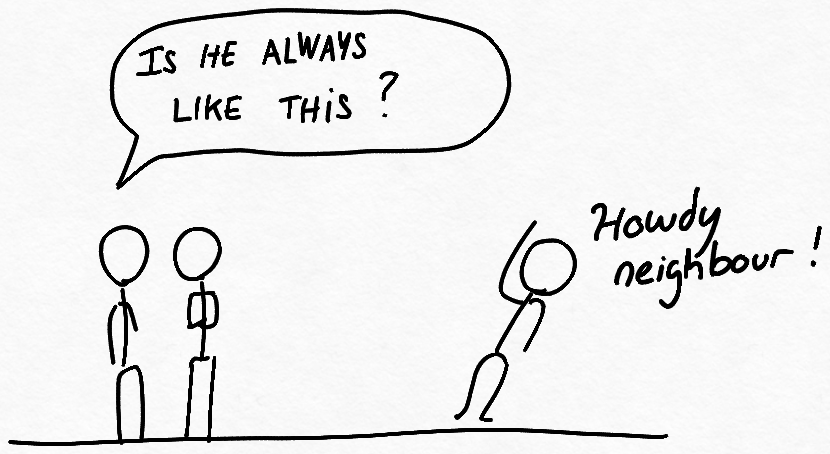 Is HE ALWAYS
LIKE THiS ?
Howdy
neighbour !